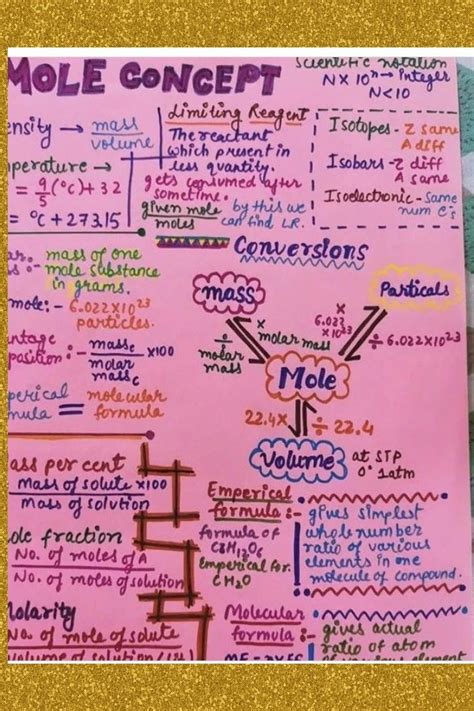 Scientific notation
N × 10ⁿ → Integer
N<10
MOLE CONCEPT
ensity → mass
volume
perature →
= 9/5 (°C) + 32
= °C + 273.15
Limiting Reagent
The reactant
which present in
less quantity.
gets consumed after
sometime.
given mole
moles
by this we
can find L.R.
Isotopes - Z same
A diff
Isobars - Z diff
A same
Isoelectronic - same
num e⁻s
Conversions
ar. mass of one
s :- mole substance
in grams.
mole:- 6.022×10²³
particles.
ntage
position :- mass c ×100
molar
mass c
perical = molecular
mula formula
mass
Particals
×
molar mass
÷
molar
mass
×
6.022
×10²³
÷ 6.022×10²³
Mole
22.4×
÷ 22.4
Volume at STP
0° 1atm
ass per cent
mass of solute ×100
Mass of solution
ole fraction
No. of moles of A
No. of moles of solution
Molarity
No. of mole of solute
volume of solution
Emperical
formula :- gives simplest
whole number
ratio of various
elements in one
molecule of compound.
formula of
C6H12O6
emperical for.
CH2O
Molecular
formula :- gives actual
ratio of atom